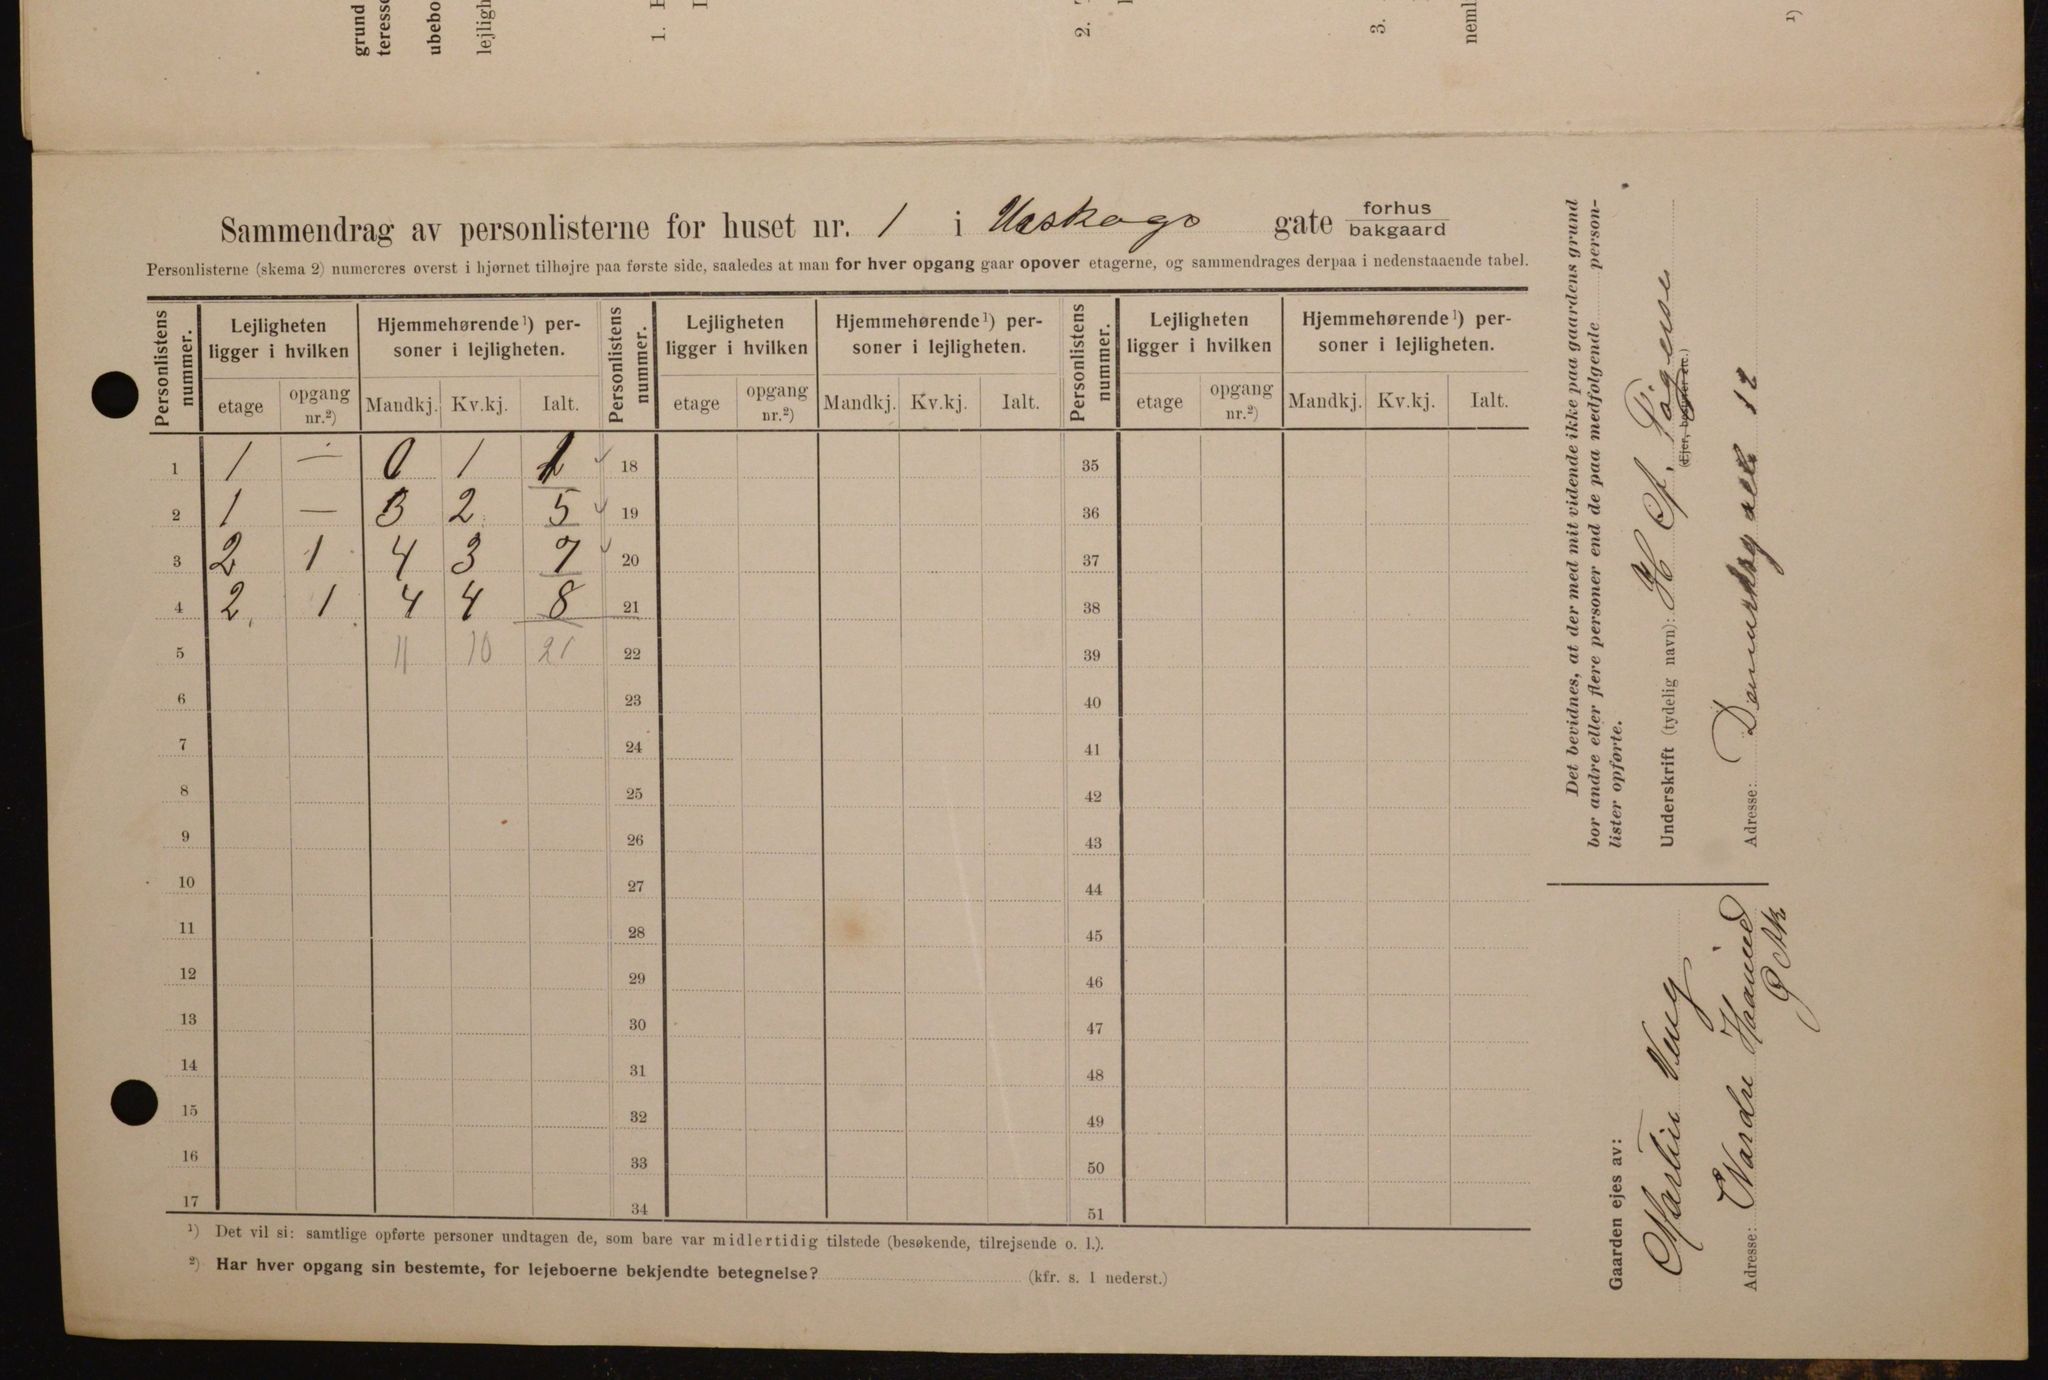 grund
teresse
ubebo
lejligh
1.
2.
3.
neml
1)
Sammendrag av personlisterne for huset nr. 1 i Ueskogs gate forhus
bakgaard
Personlisterne (skema 2) numereres øverst i hjørnet tilhøjre paa første side, saaledes at man for hver opgang gaar opover etagerne, og sammendrages derpaa i nedenstaaende tabel.
Personlistens nummer. Lejligheten ligger i hvilken Hjemmehørende¹) personer i lejligheten. Personlistens nummer. Lejligheten ligger i hvilken Hjemmehørende¹) personer i lejligheten. Personlistens nummer. Lejligheten ligger i hvilken Hjemmehørende¹) personer i lejligheten.
etage opgang nr.²) Mandkj. Kv.kj. Ialt. etage opgang nr.²) Mandkj. Kv.kj. Ialt. etage opgang nr.²) Mandkj. Kv.kj. Ialt.
1 1 — 0 1 1 18 35
2 1 — 3 2 5 19 36
3 2 1 4 3 7 20 37
4 2 1 4 4 8 21 38
5 11 10 21 22 39
6 23 40
7 24 41
8 25 42
9 26 43
10 27 44
11 28 45
12 29 46
13 30 47
14 31 48
15 32 49
16 33 50
17 34 51
¹) Det vil si: samtlige opførte personer undtagen de, som bare var midlertidig tilstede (besøkende, tilrejsende o. l.).
²) Har hver opgang sin bestemte, for lejeboerne bekjendte betegnelse? (kfr. s. 1 nederst.)
Det bevidnes, at der med mit vidende ikke paa gaardens grund
bor andre eller flere personer end de paa medfølgende personlister opførte.
Underskrift (tydelig navn): H A.
(Ejer, bestyrer etc.)
Adresse: 12
Gaarden ejes av:
Martin Veng
Adresse: Nardre